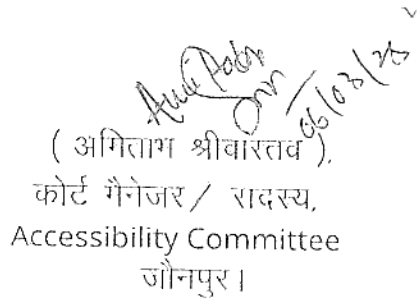 06/03/25
( अमिताभ श्रीवास्तव ),
कोर्ट मैनेजर / सदस्य,
Accessibility Committee
जौनपुर।